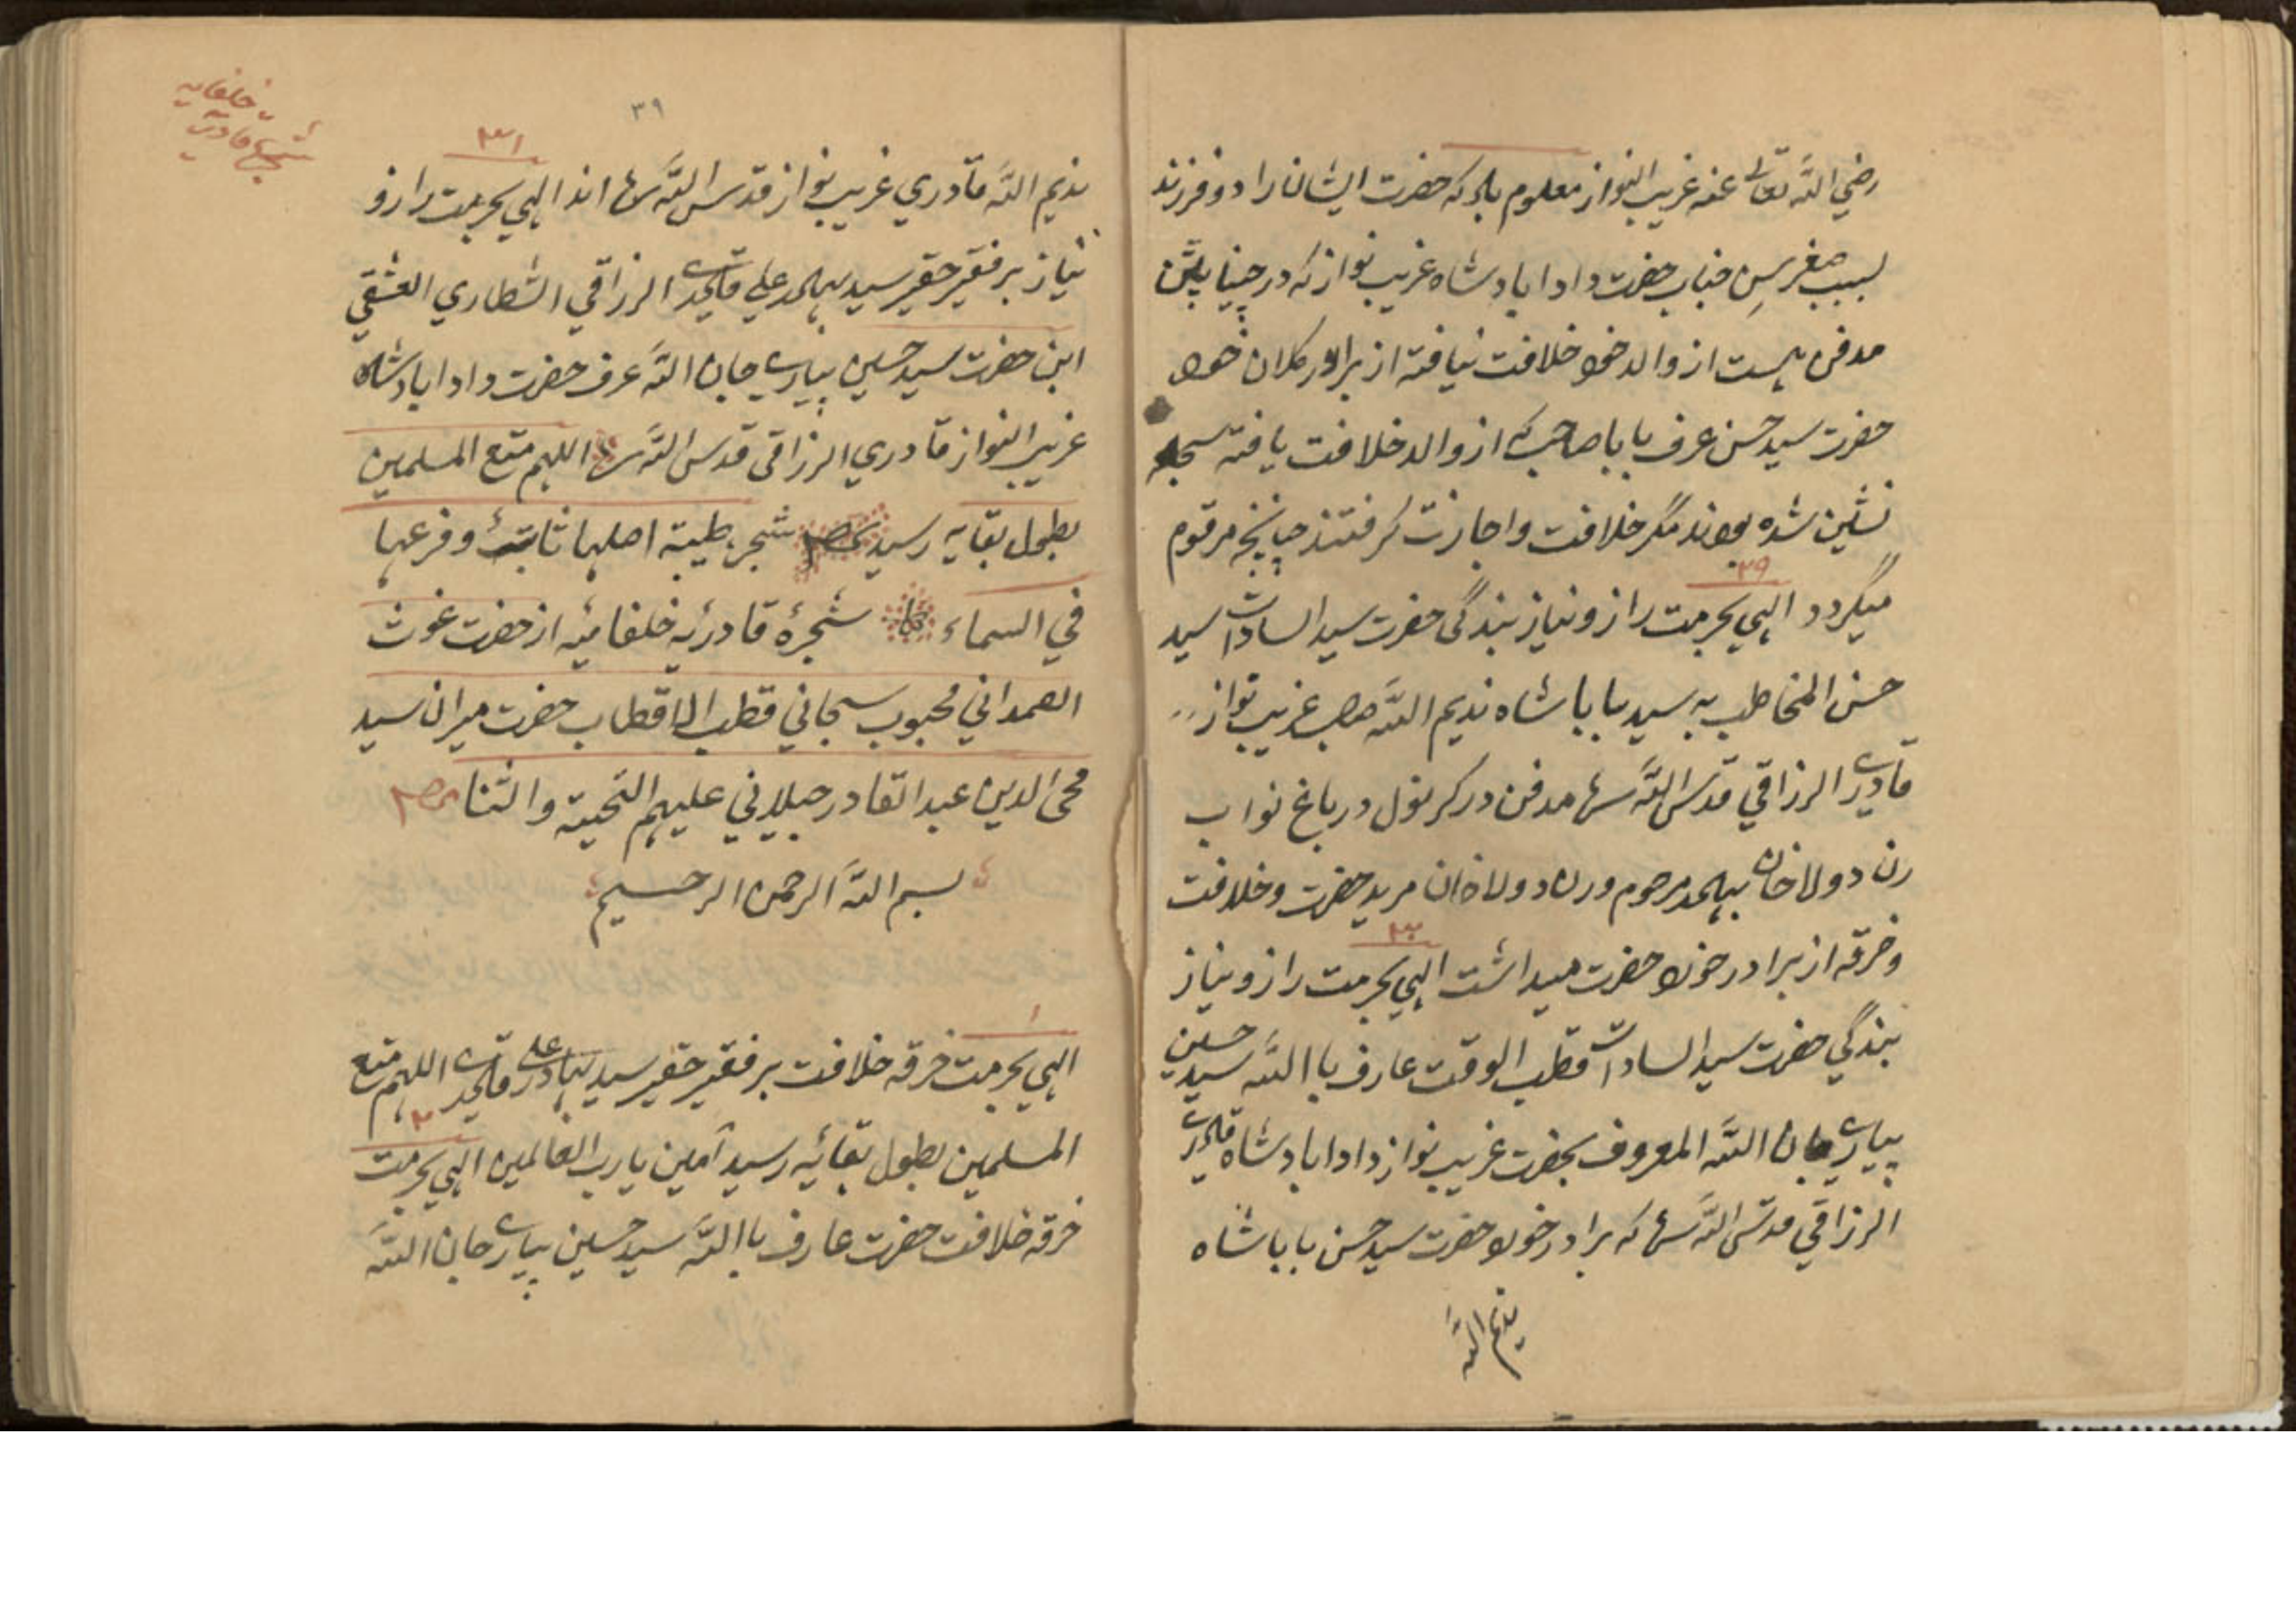 رضي الله تعالى عنه غريب النواز معلوم باد كه حضرت ايشانرا دو فرزند
لسبب صغر سِن جناب حضرت دادا بادشاه غريب نواز كه در چينا پٹن
مدفن هست از والد خود خلافت نيافته از برادر كلان خود
حضرت سيد حسن عرف بابا صاحب كه از والد خلافت يافته سجاده
نشين شده بودند مگر خلافت واجازت گرفتند چنانچه مرقوم
۲۹
ميگردد الهي بحرمت راز ونياز بندگی حضرت سيد السادات سيد
حسن المخاطب به سيد بابا شاه نديم الله صاحب غريب نواز
قادري الرزاقي قدس الله سره مدفن در كرنول در باغ نواب
رن دولا خان بهادر مرحوم ورن دولا خان مريد حضرت وخلافت
۳۰
وخرقه از برادر خود حضرت ميداشت الهي بحرمت راز ونياز
بندگي حضرت سيد السادات قطب الوقت عارف باالله سيد حسين
پيارے جان الله المعروف بحضرت غريب نواز دادا بادشاه قادري
الرزاقي قدس الله سره كه برادر خود حضرت سيد حسن بابا شاه
نديم الله
۳۹
خلفايه
شجرۀ قادريه
۳۱
نديم الله قادري غريب نواز قدس الله سره اند الهي بحرمت راز و
نياز بر فقير حقير سيد بهادر علي قادري الرزاقي الشطاري العشقي
ابن حضرت سيد حسين پيارے جان الله عرف حضرت دادا بادشاه
غريب النواز قادري الرزاقی قدس الله سره اللهم متع المسلمين
بطول بقايه رسيد شجرۀ طيبة اصلها ثابت وفرعها
في السماء شجرۀ قادريۀ خلفائيه از حضرت غوث
الصمداني محبوب سبحاني قطب الاقطاب حضرت ميران سيد
محی الدين عبد القادر جيلاني عليهم التحية والثنا
بسم الله الرحمن الرحيم
۱
الهي بحرمت خرقه خلافت بر فقير حقير سيد بهادر علي قادري اللهم متع
۲
المسلمين بطول بقائيه رسيد آمين يا رب العالمين الهي بحرمت
خرقه خلافت حضرت عارف باالله سيد حسين پيارے جان الله